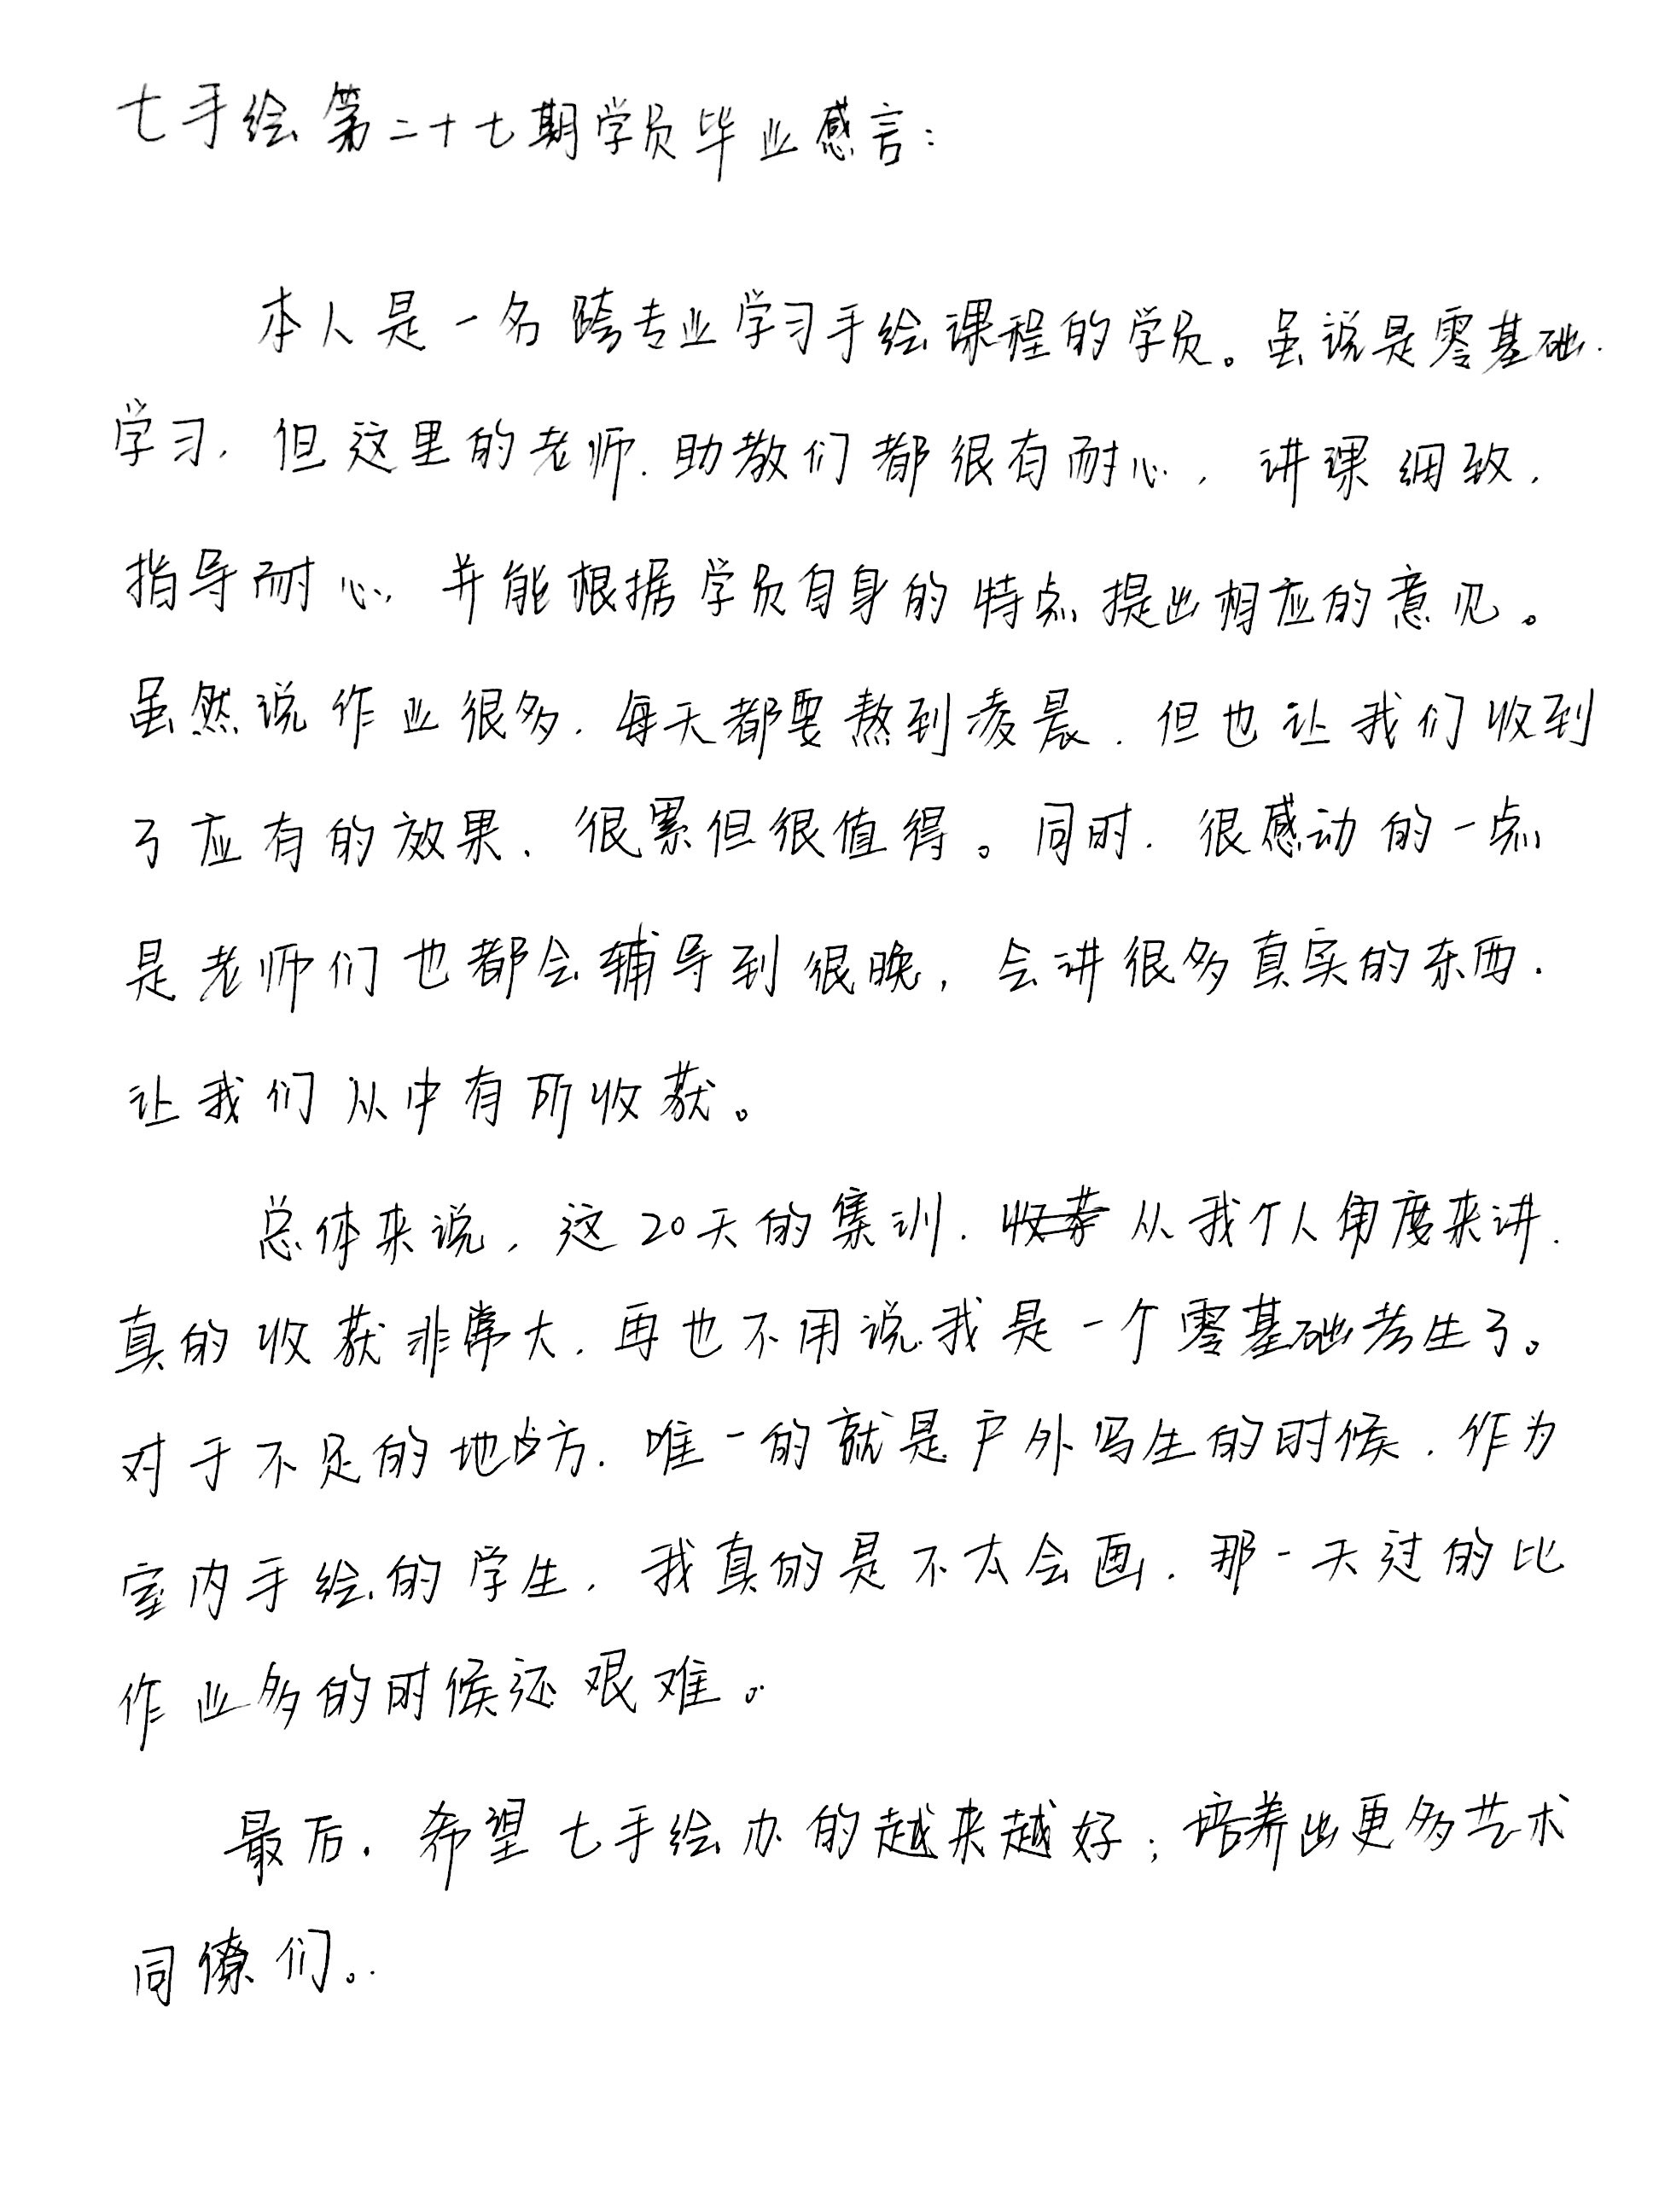 七手绘第二十七期学员毕业感言：
本人是一名跨专业学习手绘课程的学员。虽说是零基础.
学习，但这里的老师.助教们都很有耐心，讲课细致，
指导耐心，并能根据学员自身的特点提出相应的意见。
虽然说作业很多，每天都要熬到凌晨，但也让我们收到
了应有的效果、很累但很值得。同时，很感动的一点
是老师们也都会辅导到很晚，会讲很多真实的东西.
让我们从中有所收获。
总体来说，这20天的集训，从我个人角度来讲.
真的收获非常大，再也不用说我是一个零基础考生了。
对于不足的地方，唯一的就是户外写生的时候，作为
室内手绘的学生，我真的是不太会画，那一天过的比
作业多的时候还艰难。
最后，希望七手绘办的越来越好；培养出更多艺术
同僚们。